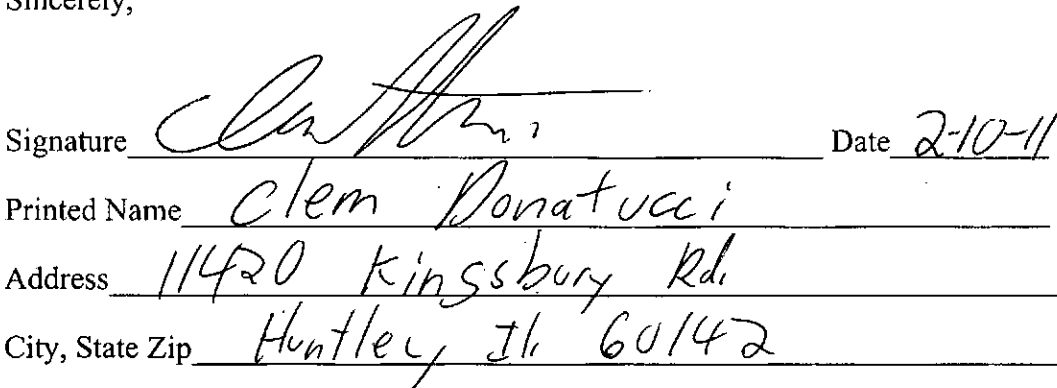 Sincerely,
Signature Date 2-10-11
Printed Name Clem Donatucci
Address 11420 Kingsbury Rd.
City, State Zip Huntley, Il. 60142